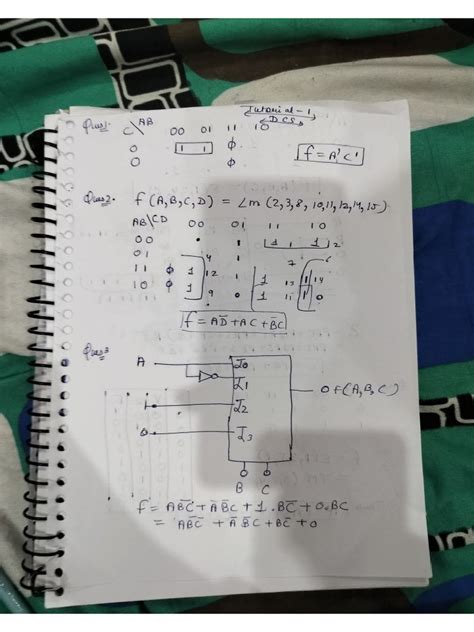 Tutorial-1
DCS
Ques1. C\AB 00 01 11 10
0 1 1 φ
0 φ
f = A'C'
Ques2. f(A,B,C,D) = Σm(2,3,8,10,11,12,14,15)
AB\CD 00 01 11 10
00 1 1 2
01 4 7 6
11 φ 1 12 1 15 1 14
10 φ 1 1 11 1 10
f = AD̅ + AC + B̅C
Ques3
A I0
I1
I2
I3
0 f(A,B,C)
B C
f = AB̅C̅ + A̅B̅C + 1.BC̅ + 0.BC
= AB̅C̅ + A̅B̅C + BC̅ + 0